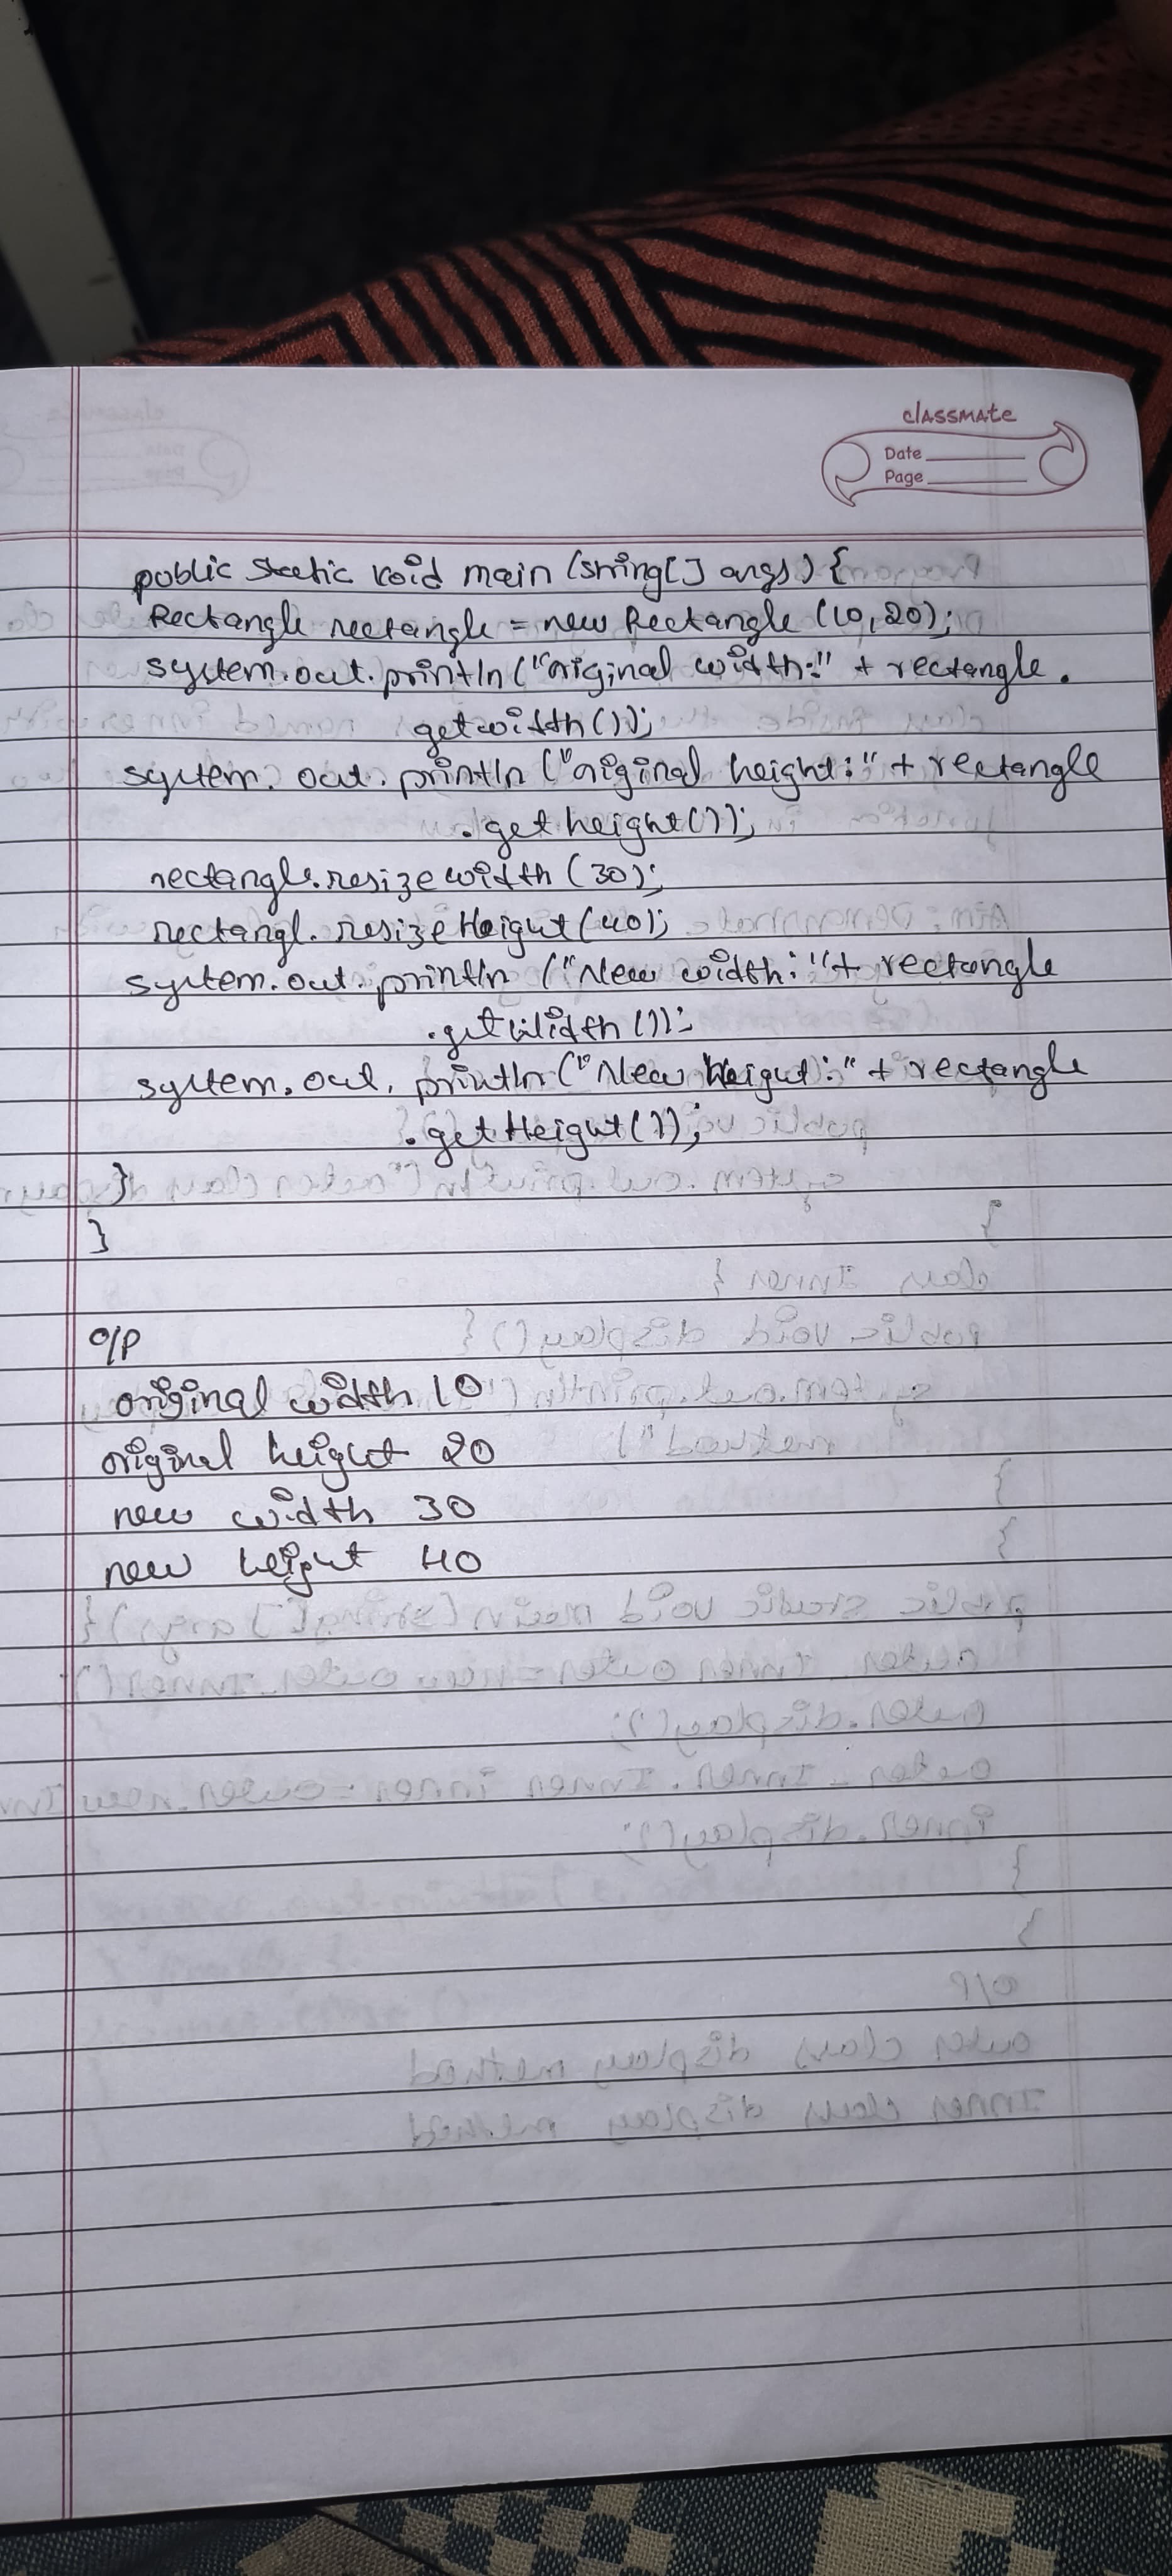 classmate
Date
Page
public static void main (string[] args) {
Rectangle rectangle = new Rectangle (10,20);
system.out.println ("original width:" + rectangle.
getwidth());
system. out. println ("original height:" + rectangle
.getheight());
rectangle.resizewidth (30);
rectangl. resizeHeight(40);
system.out.println ("New width:"+ rectangle
.getWidth());
system.out. println ("New Height:" + rectangle
.getHeight());
}
}
O/P
original width 10
original height 20
new width 30
new height 40